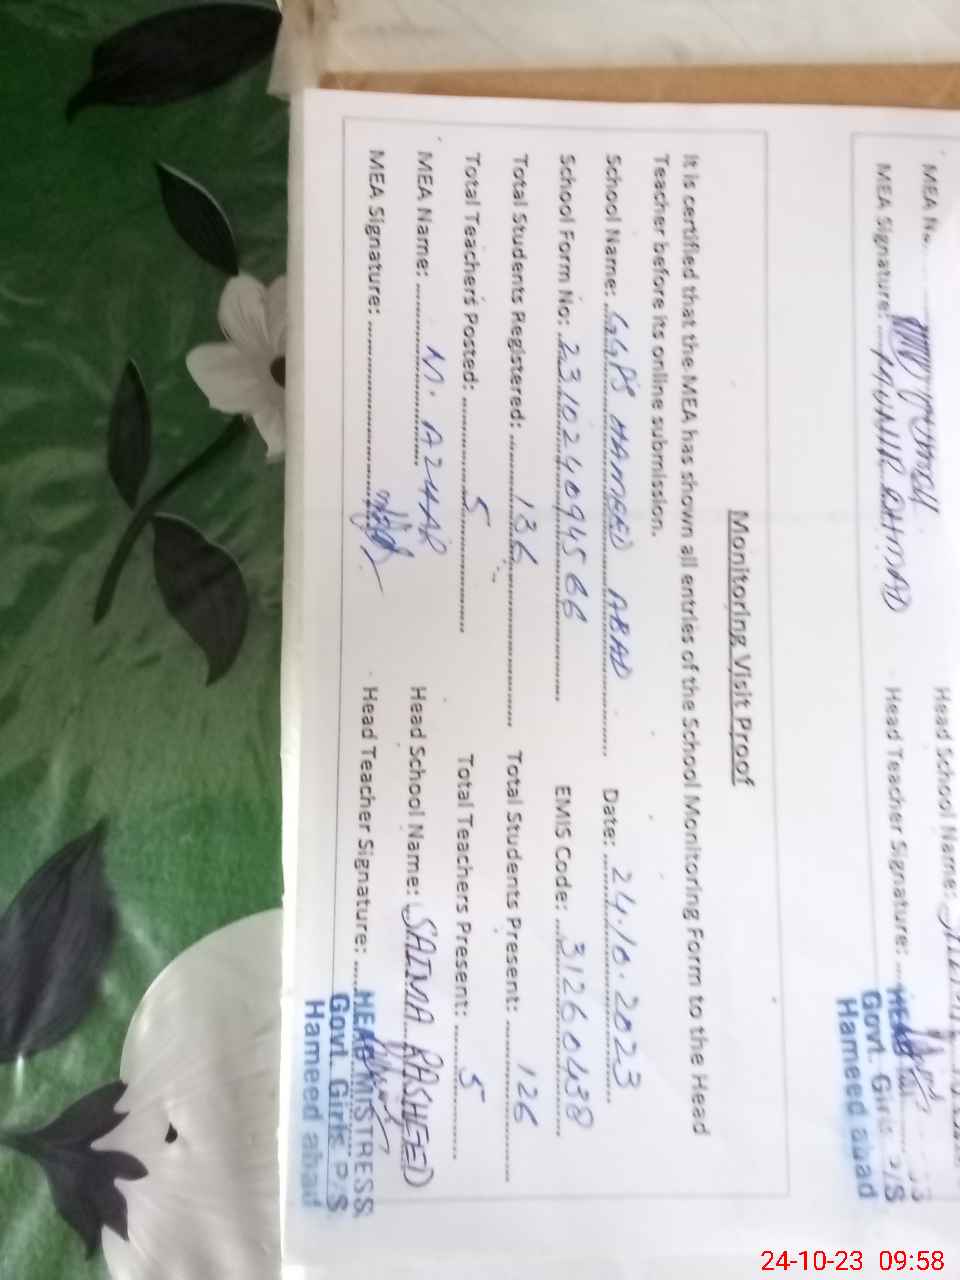 MEA Signature: MUNIR AHMAD
Head School Name:
Head Teacher Signature:
Govt. Girls P/S
Hameed abad
Monitoring Visit Proof
It is certified that the MEA has shown all entries of the School Monitoring Form to the Head
Teacher before its online submission.
School Name: GGPS HAMEED ABAD Date: 24.10.2023
School Form No: EMIS Code: 31260438
Total Students Registered: 136 Total Students Present: 126
Total Teachers Posted: 5 Total Teachers Present: 5
MEA Name: M. AZHAR Head School Name: SAIMA RASHEED
MEA Signature: Head Teacher Signature:
HEADMISTRESS
Govt. Girls P/S
Hameed abad
24-10-23 09:58